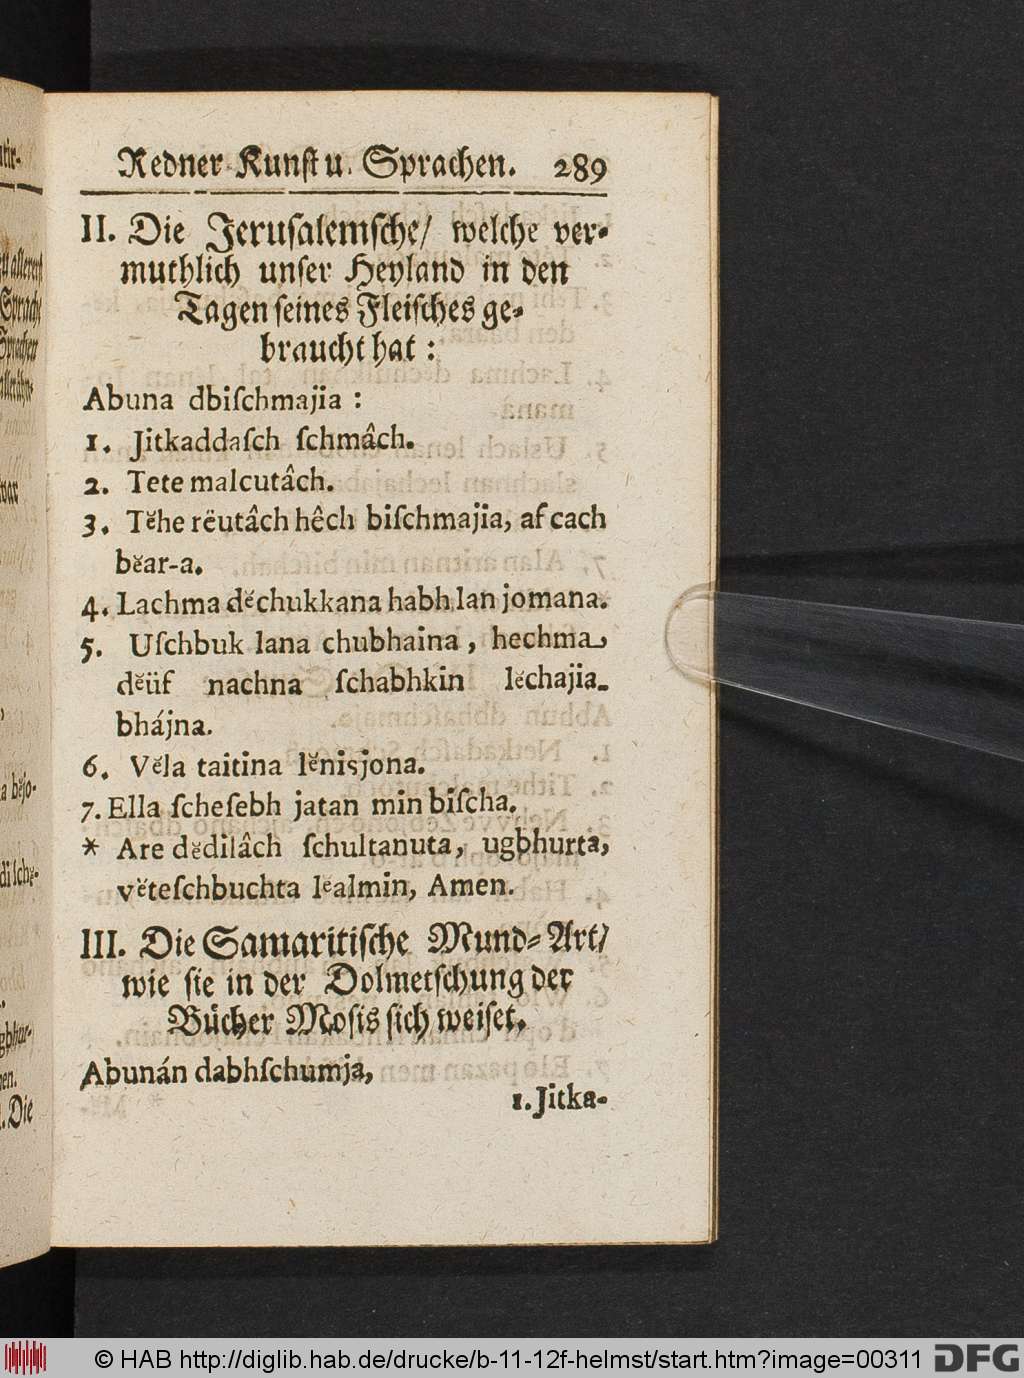 Redner Kunst u. Sprachen. 289
II. Die Jeruſalemſche/ welche ver-
muthlich unſer Heyland in den
Tagen ſeines Fleiſches ge-
braucht hat:
Abuna dbiſchmajia:
1. Jitkaddaſch ſchmâch.
2. Tete malcutâch.
3. Tĕhe rĕutâch hêch biſchmajia, af cach
bĕar-a.
4. Lachma dĕchukkana habh lan jomana.
5. Uſchbuk lana chubhaina, hechma-
dĕüf nachna ſchabhkin lĕchajia-
bhájna.
6. Vĕla taitina lĕnisjona.
7. Ella ſcheſebh jatan min biſcha.
* Are dĕdilâch ſchultanuta, ugbhurta,
vĕteſchbuchta lĕalmin, Amen.
III. Die Samaritiſche Mund-Art/
wie ſie in der Dolmetſchung der
Bücher Moſis ſich weiſet.
Abunán dabhſchumja,
1. Jitka-
© HAB http://diglib.hab.de/drucke/b-11-12f-helmst/start.htm?image=00311
DFG